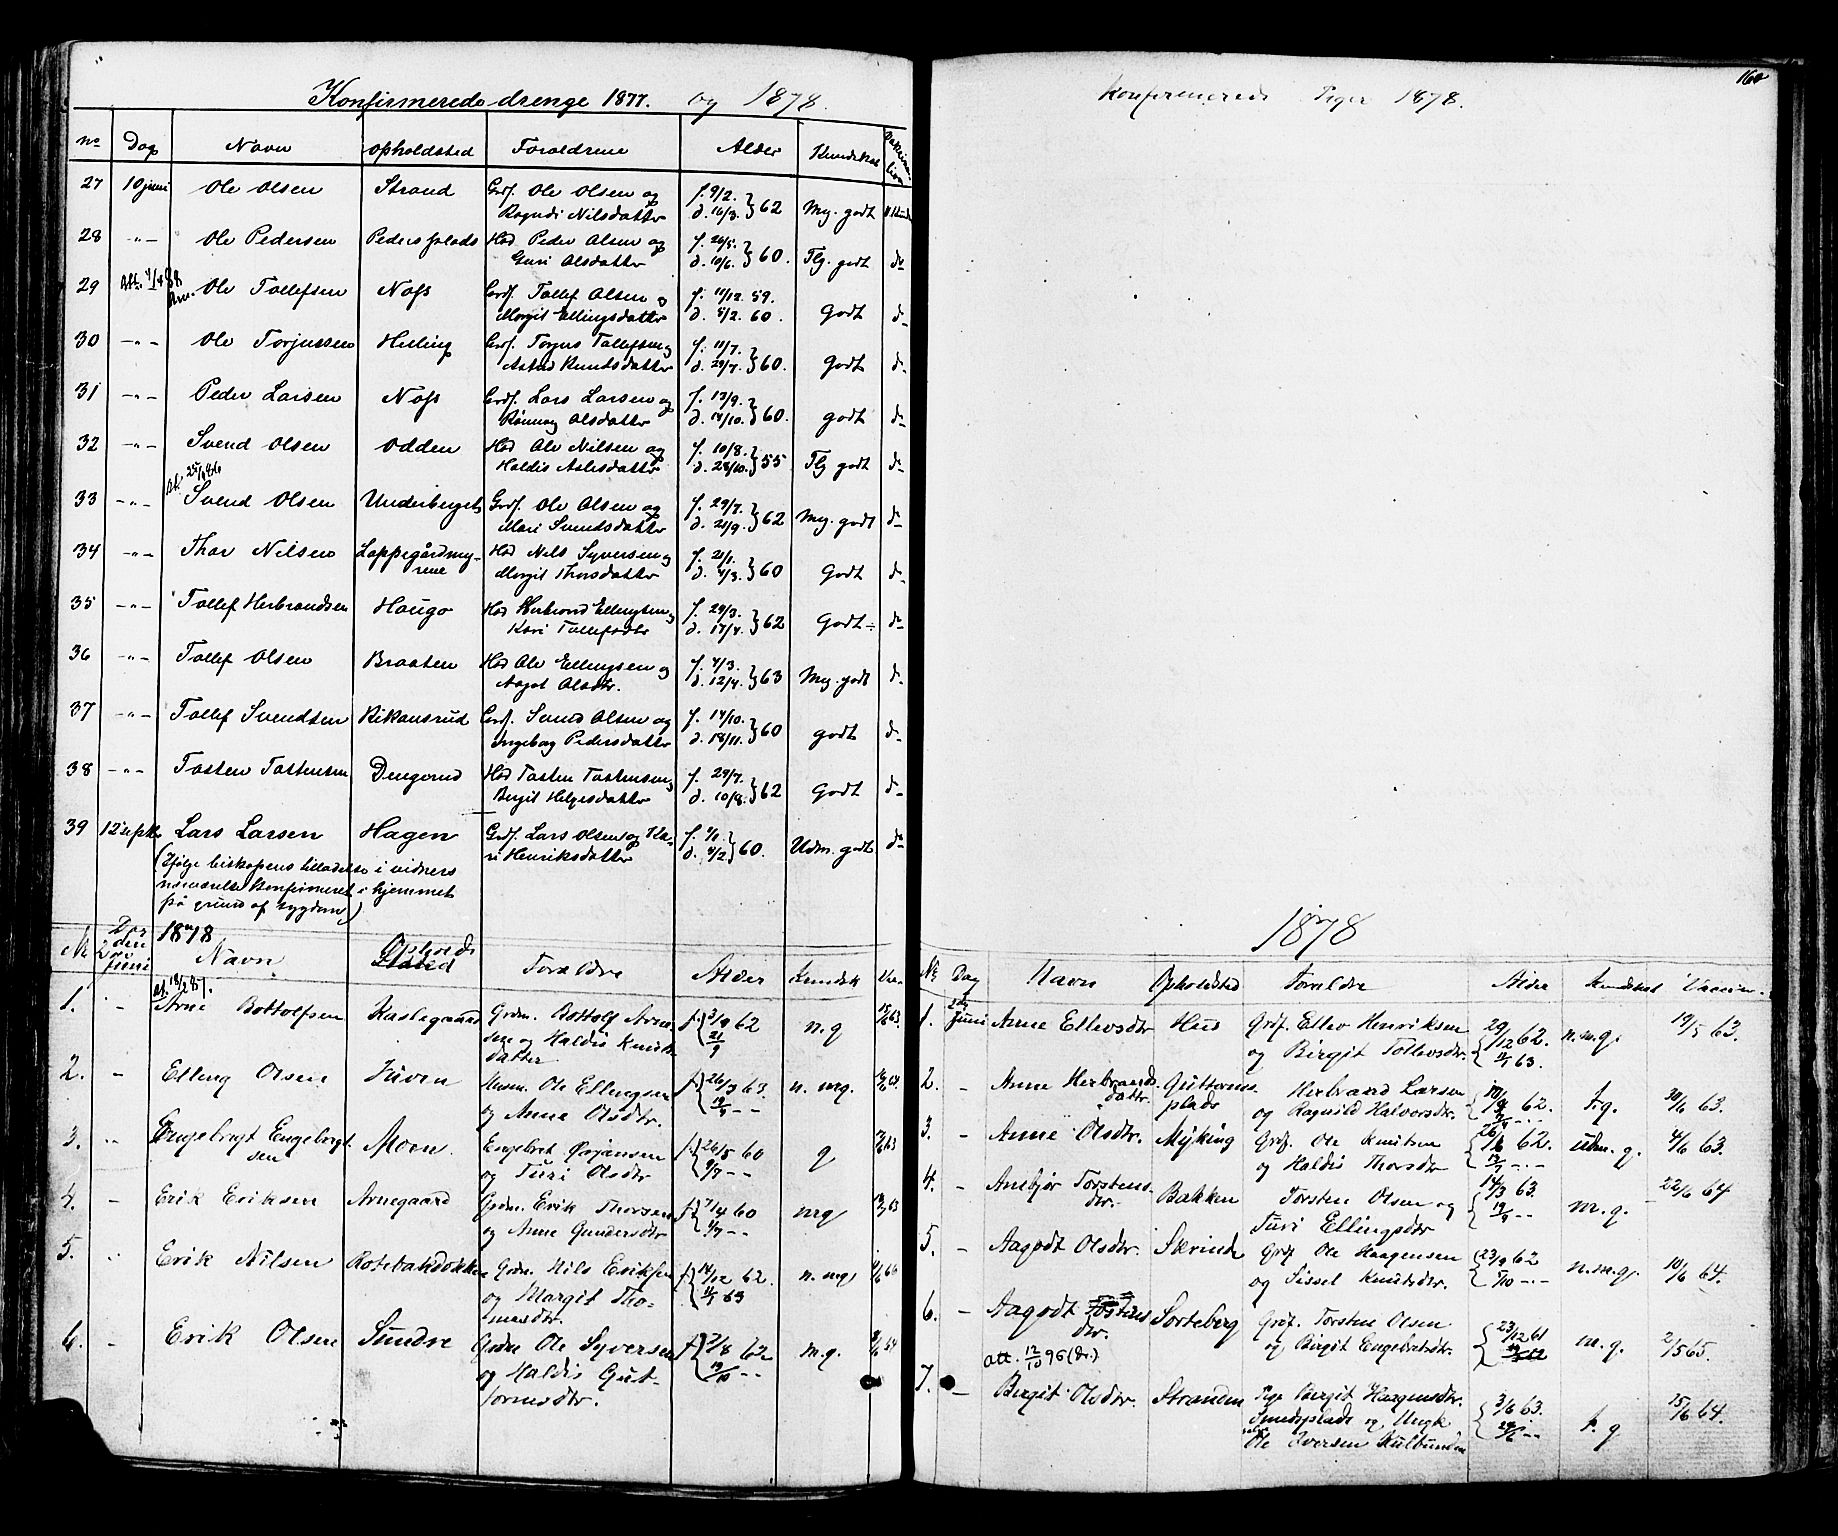 Konfirmerede drenge 1877. og 1878.
No Dag Navn Opholdsted Forældrene Alder Kundskab
27 10 juni Ole Olsen Strand Grdf. Ole Olsen og f. 9/2. } 62 Mg. godt
Ragndi Nilsdatter d. 16/3.
28 -"- Ole Pedersen Pedersplads Hsd Peder Olsen og f. 26/5. } 60. Tlg. godt do
Guri Olsdatter d. 10/6.
29 Att. Ole Tollefsen Næss Grdf. Tollef Olsen og f. 11/12 59. Godt do
Margit Ellingsdatter d. 5/2. 60.
30 -"- Ole Torjussen Hilling Grdf. Torjus Tollefsen og f. 11/7. } 60. Godt do
Astrid Knutsdatter d. 29/7.
31 -"- Peder Larsen Næss Grdf. Lars Larsen og f. 13/9. } 60. godt do
Rønnog Olsdatter d. 14/10.
32 -"- Svend Olsen Odden Hsd Ole Nilsen og f. 10/8. } 55 Tlg godt do
Haldis Aslesdatter d. 28/10.
33 -"- Svend Olsen Underberget Grdf. Ole Olsen og f. 29/7. } 62 Mg. godt do
Mari Svendsdatter d. 21/9.
34 -"- Thor Nilsen Loppegårdmy- Hsd Nils Syversen og f. 21/1. } 60 Godt do
rene Margit Thorsdatter d. 4/3.
35 -"- Tollef Herbrandsen Haugo Hsd Herbrand Ellingsen og f. 29/3. } 62 Godt do
Kari Tollefsdtr d. 17/4.
36 -"- Tollef Olsen Braaten Hsd Ole Ellingsen og f. 4/3. } 63 Mg. godt do
Aagot Olsdtr. d. 12/4.
37 -"- Tollef Svendsen Rikansrud Grdf. Svend Olsen og f. 14/10. } 60 godt do
Ingebog Pedersdatter d. 18/11.
38 -"- Tosten Tostensen Dengerud Hsd Tosten Tostensen og f. 29/7. } 62 Godt do
Birgit Helgesdatter d. 10/8.
39 12 septbr Lars Larsen Hagen Grdf. Lars Olsen og Ka- f. 1/1 } 60. Udm. godt do
ri Henriksdatter d. 4/2
(Ifølge biskopens tilladelse i vidners
nærværelse konfirmeret i hjemmet
på grund af sygdom)
1878
No den 2 Juni Navn Opholds Sted Forældre Alder Kundsk
1. - Arne Bottolfsen Kastegaard Grdm. Bottolf Arne- f. 3/9 62 n.g
sen og Haldis Knuts- 21/9
datter
2. - Elling Olsen Juven Husm. Ole Ellingsen f. 26/3 63 n. mg.
og Anne Olsdtr. 19/4 - -
3. - Engebrgt Engebrgt- Moen Engebret Ørjansen f. 26/5 60 g
sen og Turi Olsdtr. 9/7 - -
4. - Erik Eriksen Arnegaard Grdm. Erik Thorsen f. 7/4 60 mg
og Anne Gundersdtr 1/7 - -
5. - Erik Nilsen Rotebakdokken Grdm. Nils Eriksen f. 14/12 62. n. mg
og Margit Tho- 11/1 63
masdtr.
6. - Erik Olsen Sundre Grdm Ole Syversen f. 7/8 62 m.g.
og Haldis Gut- 19/10 - -
tormsdtr.
160
Konfirmerede Piger 1878.
1878
No Dag Navn Opholdsted Forældre Alder Kundskab Vaccin.
1. 2den Juni Anne Ellevsdtr Hus Grdf. Ellev Henriksen 29/12 62. n.m.g. 19/5 63.
og Birgit Tollevsdtr. 11/1 63.
2. - Anne Herbrands- Guttorms- Herbrand Larsen 62. t.g. 30/6 63.
dattr. plads og Ragnild Halvorsdtr.
3. - Anne Olsdtr. Myking Grdf. Ole Knutsen 26/6 62. udm. g. 4/6 63.
og Haldis Thorsdtr 13/7 - -
4. - Anbjør Torstens- Bakken Torsten Olsen og 14/3 63. m.g. 22/6 64
dtr. Turi Ellingsdtr 19/4 - -
5. - Aagodt Olsdtr. Skrinde Grdf Ole Haagensen 23/9 62 n.m.g. 10/6 64.
og Sissel Knutsdtr. 5/10 - -
6. - Aagodt Tostens Sorteberg Grdf. Torsten Olsen 23/12 61 m.g. 2/5 65.
dtr. og Birgit Engebretsdtr.
att. 12/10 96 (dr.)
7. - Birgit Olsdtr. Stranden Pige Birgit Haagensdtr. 3/6 63. t. g 15/6 64.
og Ungk
Ole Iversen Kulbunden